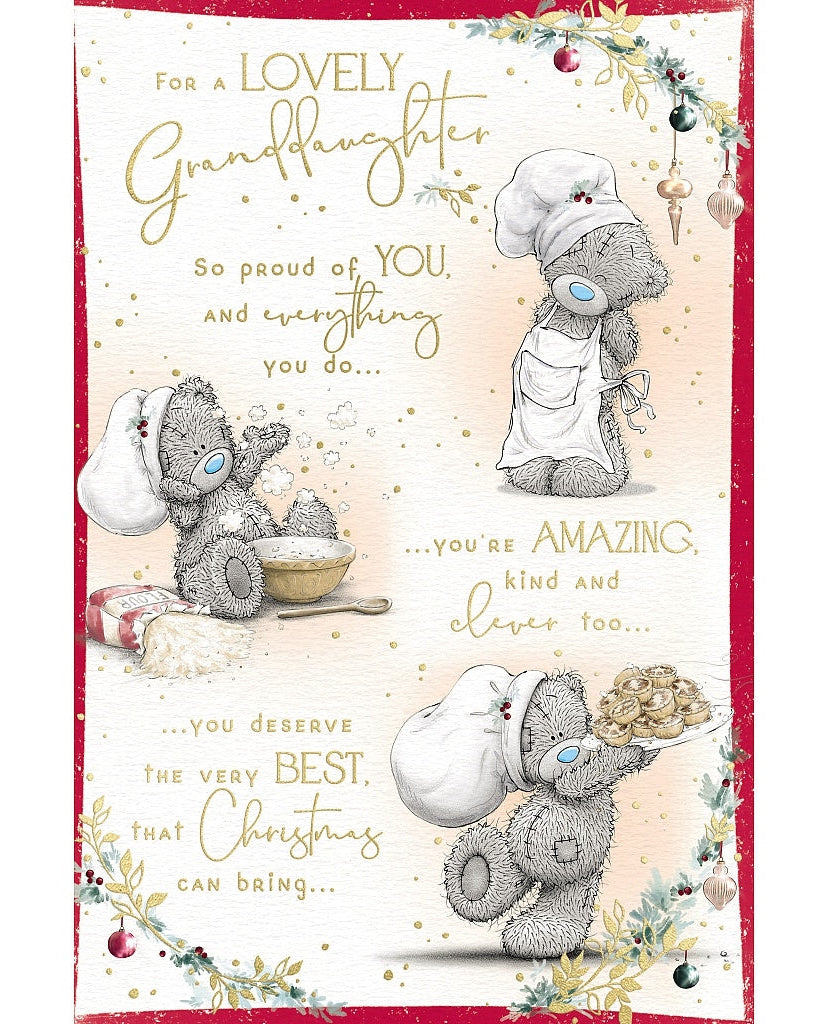 FOR A LOVELY
Granddaughter
SO PROUD OF YOU,
AND everything
YOU DO...
FLOUR
...YOU'RE AMAZING,
KIND AND
clever TOO...
...YOU DESERVE
THE VERY BEST,
THAT Christmas
CAN BRING...